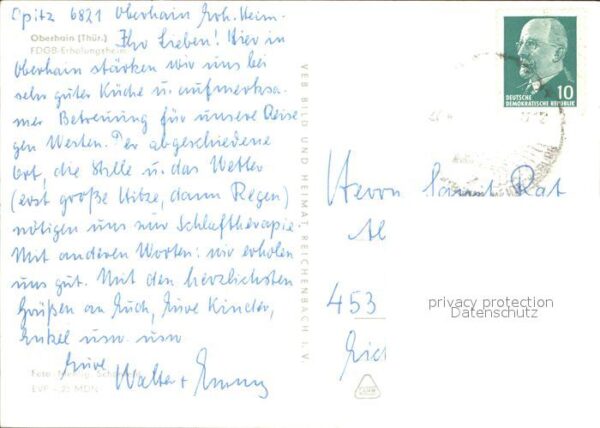 Spitz 6821 Oberhain Erh. Heim.
Oberhain (Thür.)
FDGB-Erholungsheim
Ihr Lieben! Hier in
Oberhain stärken wir uns bei
sehr guter Küche u. aufmerksa-
mer Betreuung für unsere Reise
gen Westen. Der abgeschiedene
Ort, die Stille u. das Wetter
(erst große Hitze, dann Regen)
nötigen uns zur Schlaftherapie
Mit anderen Worten: wir erholen
uns gut. Mit den herzlichsten
Grüßen an Euch, Eure Kinder,
Enkel usw. usw
Eure
Walter + Emmy
Foto:
EVP -,25 MDN
VEB BILD UND HEIMAT, REICHENBACH I. V.
10
DEUTSCHE
DEMOKRATISCHE REPUBLIK
Herrn Sanit Rat
Al
453
privacy protection
Datenschutz